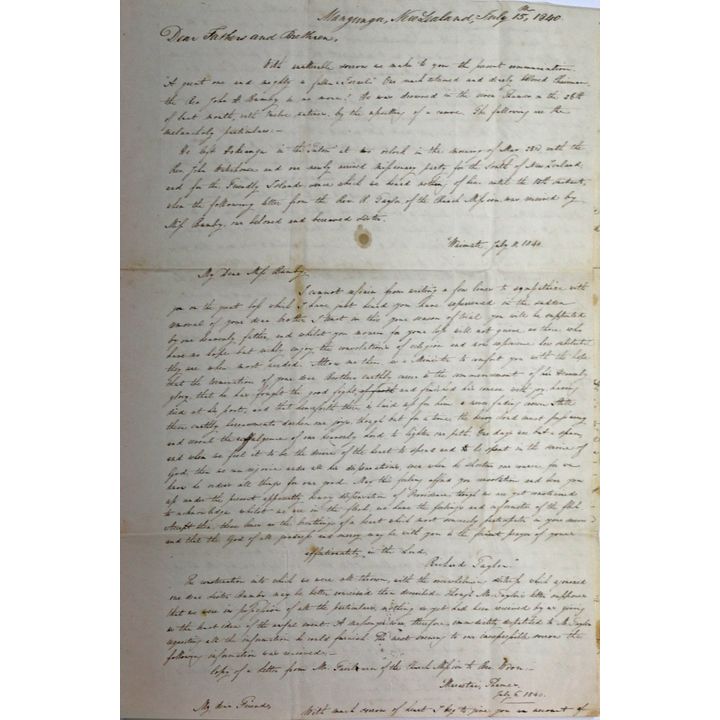 Mangunga, New Zealand, July 15th, 1840.
Dear Fathers and Brethren,
With unutterable sorrow we make to you the present communication
"A great one and mighty is fallen in Israel" Our much esteemed and dearly beloved Chairman
the Rev. John H Bumby is no more! He was drowned in the river Thames on the 26th
of last month, with twelve natives, by the upsetting of a canoe. The following are the
melancholy particulars:—
He left Hokianga in the at six o'clock in the morning of May 23d with the
Rev. John Waterhouse and our newly arrived missionary party for the South of New Zealand,
and for the Friendly Islands since which we heard nothing of him until the 10th instant,
when the following letter from the Rev. R. Taylor of the Church Mission was received by
Miss Bumby, our beloved and bereaved sister.
Waimate July 11. 1840.
My Dear Miss Bumby,
I cannot refrain from writing a few lines to sympathise with
you on the great loss which I have just heard you have experienced in the sudden
removal of your dear brother I trust in this your season of trial you will be supported
by our heavenly father, and whilst you mourn for your loss will not grieve, as those who
have no hope but richly enjoy the consolations of religion and now experience how substantial
they are when most needed. Allow me then as a Minister to comfort you with the hope
that the termination of your dear Brothers earthly career is the commencement of his Heavenly
glory, that he has fought the good fight and finished his course with joy having
died at his post, and that henceforth there is laid up for him a never fading crown. Still
these earthly bereavements darken our joys, though but for a time, the
and the effulgence of our heavenly Lord to lighten our path. Our days are but a span,
and when we feel it to be the desire of the heart to spend and to be spent in the service of
God, then we can rejoice under all his dispensations, even when he shortens our
here he orders all things for our good. May this feeling afford you consolation and bear you
up under the present apparently heavy dispensation of Providence, though as we are constrained
to acknowledge whilst we are in the flesh, we have the feelings and infirmities of the flesh.
Accept then, these lines as the breathings of a heart which most sincerely participates in your sorrow
and that the God of all goodness and mercy may be with you is the sincere prayer of yours
affectionately in the Lord,
Richard Taylor
The consternation into which we were all thrown, with the overwhelming distress which
our dear sister Bumby may be better conceived than described. Though Mr. Taylor's letter supposed
that we were in possession of all the particulars, nothing as yet had been received by us giving
us the least idea of the awful event. A messenger was therefore immediately despatched to Mr Taylor
requesting all the information he could furnish. The next evening to our inexpressible sorrow the
following information was received:—
Copy of a letter from Mr. Fairburn of the Church Mission to Rev.
Maraetai, Thames
July 6. 1840.
My dear Friends,
With much sorrow of heart I beg to give you an account of